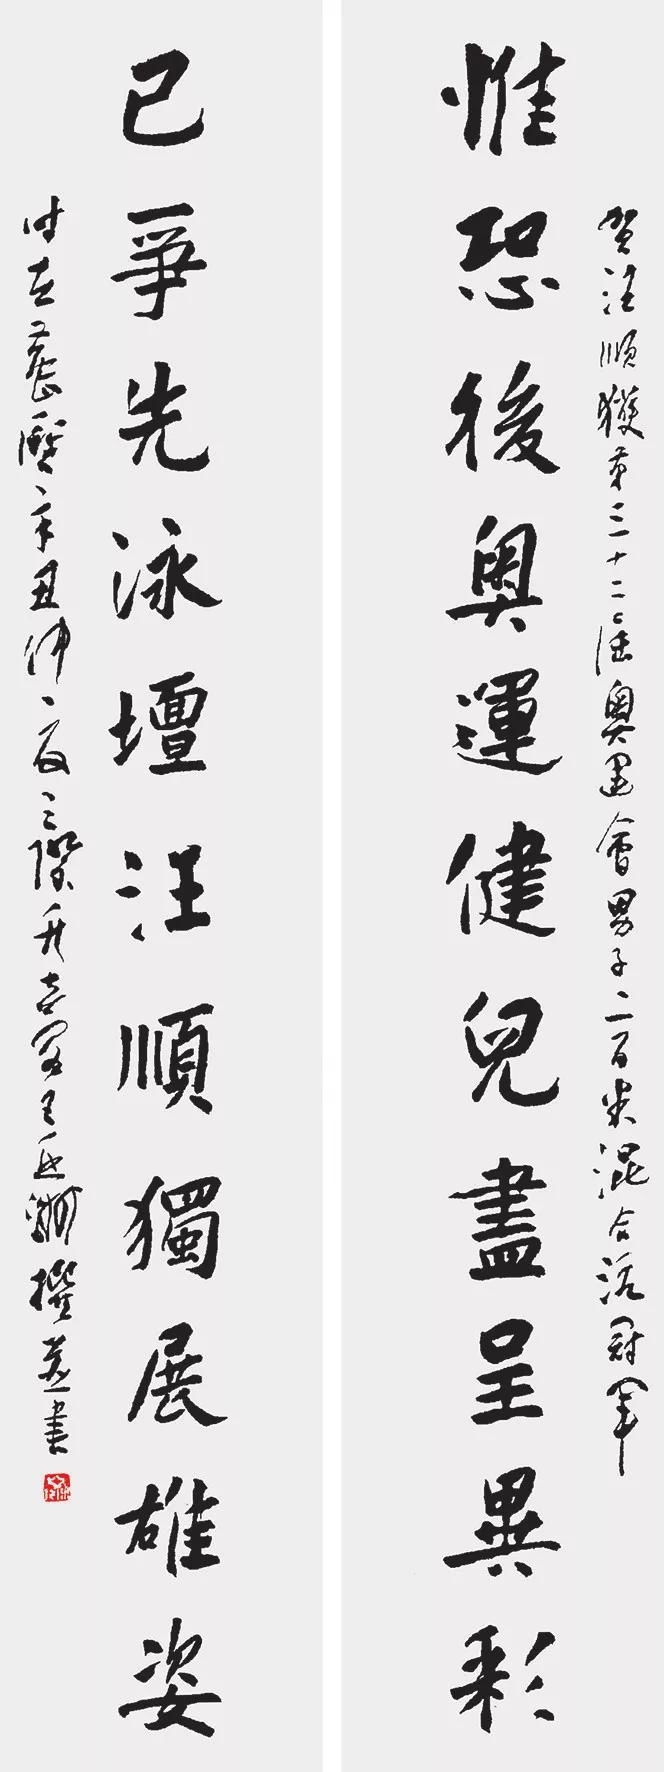 賀汪順獲第三十二屆奧運會男子二百米混合泳冠軍
惟恐後奧運健兒盡呈異彩
已爭先泳壇汪順獨展雄姿
時在農曆辛丑仲夏之際 撰並書